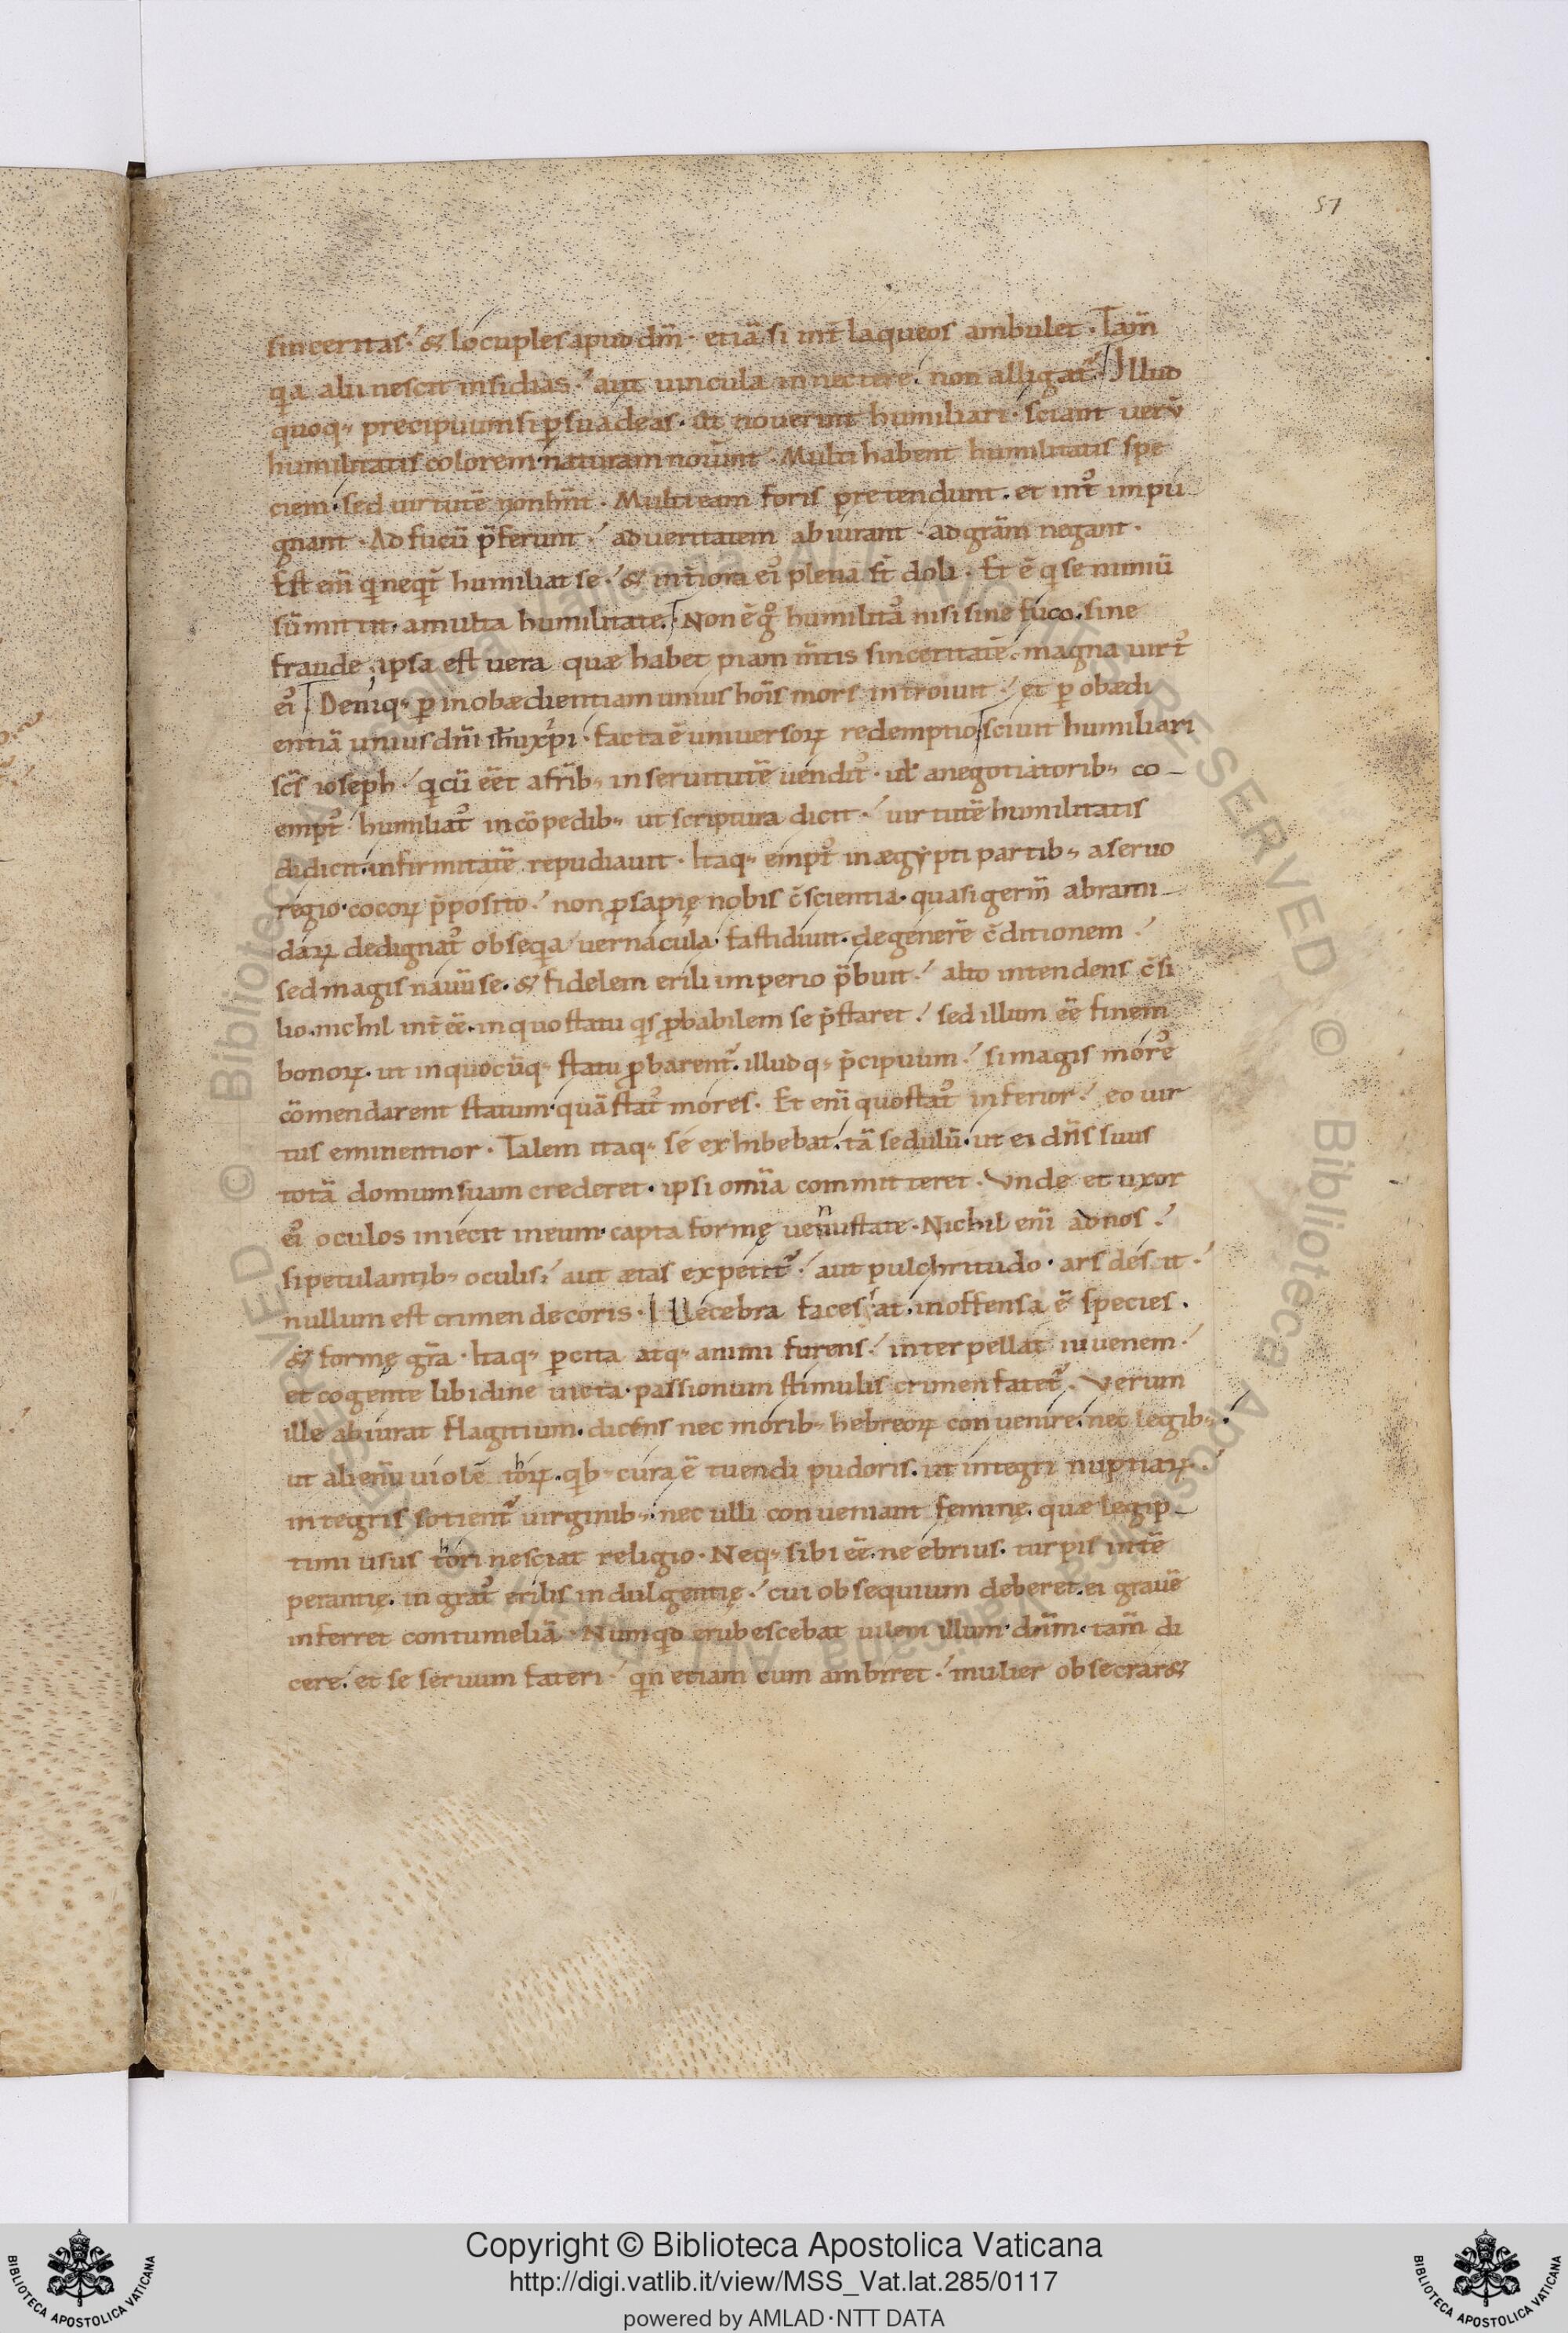 57
sinceritas. & locuples apud dm̄. etiā si int̄ laqueos ambulet. Tam̄
qa alii nescit insidias. aut uincula innectere. non alligat᷑. Illud
quoq; precipuum si ꝑsuadeas. ut nouerint humiliari. sciant uerū
humilitatis colorem naturam noūint. Multi habent humilitatis spe
ciem. sed uirtutē non hn̄t. Multi eam foris pretendunt. et int᷑ impu
gnant. Ad fucū p̄ferunt. ad ueritatem abiurant. ad grām negant.
Est eni̅ qi neqt̄ humiliat se. & int̄iora ei᷒ plena st̄ doli. Et ē qi se nimiū
sūmittit. a multa humilitate. Non ē gͦ humilita᷒ nisi sine fuco. sine
fraude. ipsa est uera quæ habet piam m̄tis sinceritatē. magna uirt᷒
ei᷒ Deniq; ꝑ inobædientiam unius hoīs mors introiuit. et ꝑ obædi
entiā unius dn̄i ih̄u xp̄i. facta ē uniuersoꝝ redemptio sciuit humiliari
sc̄s ioseph. qi cū eēt a fr̄ib; in seruitutē uendit᷒. ut a negotiatorib; co-
empt᷒. humiliat᷒ in cōpedib; ut scriptura dicit. uirtutē humilitatis
didicit. infirmitatē repudiauit. Itaq; empt᷒ in ægypti partib; a seruo
regio. cocoꝝ p̄posito. non ꝓsapię nobis c̄scientia. quasi germ̄ abrami-
daꝝ dedignat᷒ obseqa uernacula. fastidiuit. degenerē c̄ditionem.
sed magis nauū se. & fidelem erili imperio p̄buit. alto intendens c̄si
lio. nichil int̄eē. in quo statu qs ꝓbabilem se p̄staret. sed illum eē finem
bonoꝝ. ut in quocūq; statu ꝓbarent᷑. illudq; p̄cipuum. si magis more᷒
cōmendarent statum. quā stat᷒ mores. Et eni̅ quo stat᷒ inferior. eo uir
tus eminentior. Talem itaq; se exhibebat. tā sedulū. ut ei dn̄s suus
totā domum suam crederet. ipsi omīa committeret. Vnde et uxor
ei᷒ oculos iniecit in eum. capta formę uenustate. Nichil eni̅ ad nos.
si petulantib; oculis. aut ætas expetit᷑. aut pulchritudo. ars desit.
nullum est crimen decoris. Illecebra facessat. inoffensa ē species.
& formę grā. Itaq; ꝑcita atq; animi furens. interpellat iuuenem.
et cogente libidine uicta. passionum stimulis crimen fatet᷑. Verum
ille abiurat flagitium. dicens nec morib; hebreoꝝ conuenire. nec legib;.
ut alienū uiolē thoꝝ. qb; cura ē tuendi pudoris. ut integri nuptiaꝝ.
integris sotient᷑ uirginib;. nec ulli conueniant feminę. quæ legip-
timi usus thori nesciat religio. Neq; sibi eē. ne ebrius. turpis intē
perantię. in grat᷒ erilis indulgentię. cui obsequium deberet. ei grauē
inferret contumeliā. Numqd erubescebat uilem illum. dn̄m. tam̄ di
cere. et se seruum fateri. qn etiam cum ambiret. mulier obsecrar&
© Biblioteca Apostolica Vaticana ALL RIGHTS RESERVED © Biblioteca Apostolica Vaticana ALL RIGHTS RESERVED
BIBLIOTECA APOSTOLICA VATICANA
Copyright © Biblioteca Apostolica Vaticana
http://digi.vatlib.it/view/MSS_Vat.lat.285/0117
powered by AMLAD·NTT DATA
BIBLIOTECA APOSTOLICA VATICANA